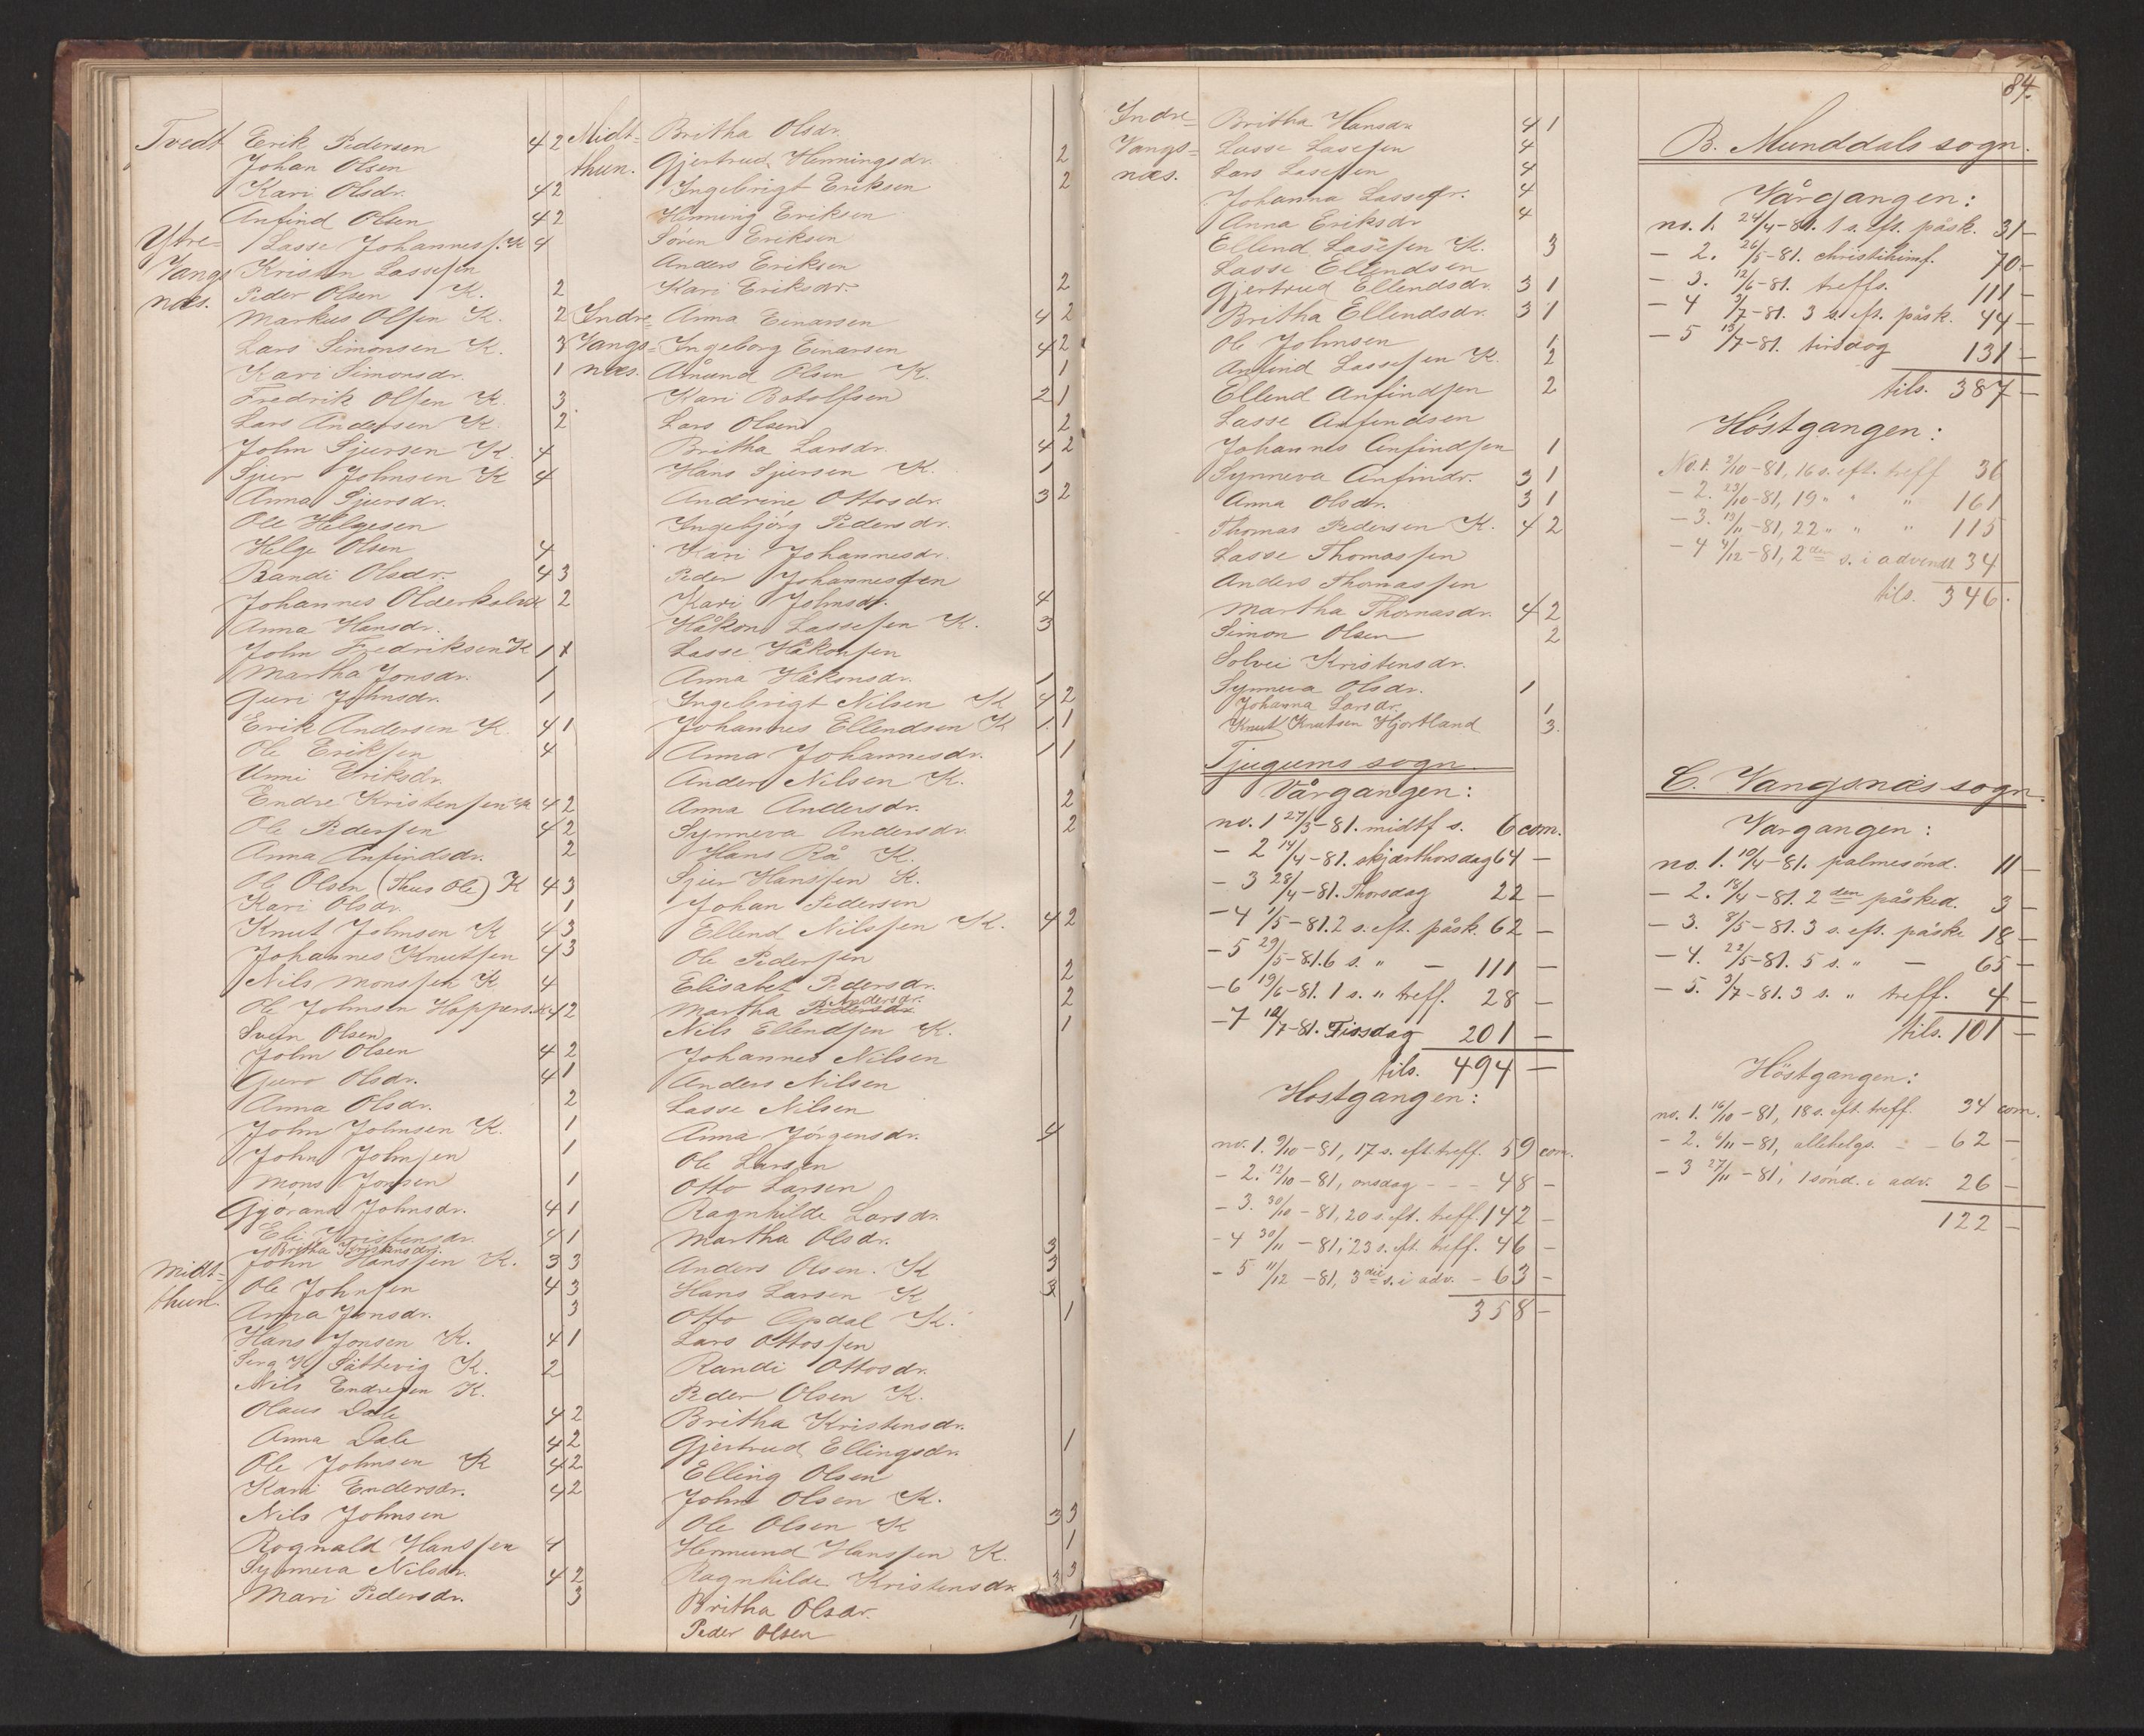 84.
Tvedt Erik Pedersen 4 2
Johan Olsen
Kari Olsdr. 4 2
Anfind Olsen 4 2
Ytre- Lasse Johanness. K 4
Vangs Kristen Lassesen
næs. Peder Olsen K. 2
Markus Olsen K. 2
Lars Simonsen K. 3
Kari Simonsdr. 1
Fredrik Olsen K. 3
Lars Andersen K. 2
John Sjursen K. 4
Sjur Johnsen K 4
Anna Sjursdr.
Ole Helgesen
Helge Olsen 4
Randi Olsdr. 4 3
Johannes Olderkalv K 2
Anna Hansdr.
John Fredriksen K 1 1
Martha Jonsdr. 1
Guri Johnsdr. 1
Erik Andersen K. 4 1
Ole Eriksen 4
Unni Eriksdr.
Endre Kristensen K 4 2
Ole Pedersen 4 2
Anna Anfindsdr. 2
Ole Olsen (Thus Ole) K 4 3
Kari Olsdr. 1
Knut Johnsen K 4 3
Johannes Knutsen 4 3
Nils Monssen K 4
Ole Johnsen Hoppers. K 4 2
Svein Olsen
John Olsen 4 2
Guro Olsdr. 4 1
Anna Olsdr. 2
John Johnsen K. 1
John Johnsen 1
Mons Jonsen 1
Gjörand Johnsdr. 4 1
Eli Kristensdr. 4 1
Britha Kristensdr.
Midt- John Hanssen K. 3 3
thun. Ole Johnsen 4 3
Anna Jonsdr. 3
Hans Jonsen K. 4 1
Sättevig K. 2
Nils Endresen K.
Olaus Dale 4 2
Anna Dale 4 2
Ole Johnsen K 4 2
Kari Endersdr. 4 2
Nils Johnsen
Rognald Hanssen 4
Synneva Nilsdr. 4 2
Mari Pedersdr. 3
Midt- Britha Olsdr.
thun. Gjertrud Henningsdr. 2
Ingebrigt Eriksen 2
Henning Eriksen
Sören Eriksen
Anders Eriksen
Kari Eriksdr. 2
Indre- Anna Einarsen 4 2
Vangs- Ingeborg Einarsen 4 2
næs. Åmund Olsen K. 1
Kari Botolfsen 2 1
Lars Olsen 2
Britha Larsdr. 4 2
Hans Sjursen K. 1
Andrine Ottosdr. 3 2
Ingebjörg Pedersdr.
Kari Johannesdr.
Peder Johannessen
Kari Johnsdr. 4
Håkon Lassesen K. 3
Lasse Håkonsen
Anna Håkonsdr. 1
Ingebrigt Nilsen K 4 2
Johannes Ellendsen K 1 1
Anna Johannesdr. 1 1
Anders Nilsen K.
Anna Andersdr. 2
Synneva Andersdr. 2
Hans Rå K.
Sjur Hanssen K.
Johan Pedersen
Ellend Nilssen K. 4 2
Ole Pedersen
Elisabet Pedersdr. 2
Martha Pedersdr. Andersdr. 2
Nils Ellendsen K. 1
Johannes Nilsen
Anders Nilsen
Lasse Nilsen
Anna Jörgensdr. 4
Ole Larsen
Otto Larsen
Ragnhilde Larsdr.
Martha Olsdr. 3
Anders Olsen. K 3
Hans Larsen K 3
Otto Opdal K. 1
Lars Ottossen
Randi Ottosdr.
Peder Olsen K.
Britha Kristensdr.
Gjertrud Ellingsdr. 1
Elling Olsen
John Olsen K.
Ole Olsen K 3 3
Hermund Hanssen K. 1
Ragnhilde Kristensdr. 3 3
Britha Olsdr.
Peder Olsen 1
Indre- Britha Hansdr 4 1
Vangs- Lasse Lasesen 4
næs. Lars Lasesen 4
Johanna Lassedr. 4
Anna Eriksdr 4
Ellend Lasesen K. 3
Lasse Ellendsen
Gjertrud Ellendsdr. 3 1
Britha Ellendsdr. 3 1
Ole Johnsen 1
Anfind Lassesen K. 2
Ellend Anfindsen 2
Lasse Anfindsen
Johannes Anfindsen 1
Synneva Anfindr. 3 1
Anna Olsdr. 3 1
Thomas Pedersen K. 4 2
Lasse Thomassen
Anders Thomassen
Martha Thomasdr. 4 2
Simon Olsen 2
Solvei Kristensdr.
Synneva Olsdr. 1
Johanna Larsdr. 1
Knut Knutsen Hjortland 3.
Tjugums sogn.
Vårgangen:
no. 1 27/3-81. midtf s. 6 com.
- 2 14/4-81. skjærthorsdag 64 -
- 3 28/4-81. Thorsdag 22 -
- 4 1/5-81. 2 s. eft. påsk. 62 -
- 5 29/5-81. 6 s. " - 111 -
- 6 19/6-81. 1 s. " treff. 28 -
- 7 12/7-81. Tirsdag 201 -
tils. 494 -
Höstgangen:
no. 1. 9/10-81, 17 s. eft. treff. 59 com.
- 2. 12/10-81, onsdag - - - 48 -
- 3. 30/10-81, 20 s. eft. treff. 142 -
- 4 30/11-81, 23 s. eft. treff. 46 -
- 5 11/12-81, 3die s. i adv. - 63 -
358 -
B. Munddals sogn.
Vårgangen:
no. 1. 24/4-81. 1 s. eft. påsk. 31 -
- 2. 26/5-81. christihimf. 70 -
- 3. 12/6-81. treffs. 111 -
- 4 3/7-81. 3 s. eft. påsk. 44 -
- 5 13/7-81. tirsdag 131 -
tils. 387 -
Höstgangen:
No. 1. 2/10-81, 16 s. eft. treff 36
- 2. 23/10-81, 19 " " " 161
- 3. 13/11-81, 22 " " " 115
- 4 4/12-81, 2den s. i advendt 34
tils. 346.
C. Vangsnæs sogn.
Vargangen:
no. 1. 10/4-81. palmesönd. 11 -
- 2. 18/4-81. 2den påsked. 3 -
- 3. 8/5-81. 3 s. eft. påske 18 -
- 4. 22/5-81. 5 s. " - 65 -
- 5. 3/7-81. 3 s. " treff. 4 -
tils. 101 -
Höstgangen:
no. 1. 16/10-81, 18 s. eft. treff. 34 com.
- 2. 6/11-81, allehelgs. - - 62 -
- 3 27/11-81, 1 sönd. i adv. 26 -
122 -